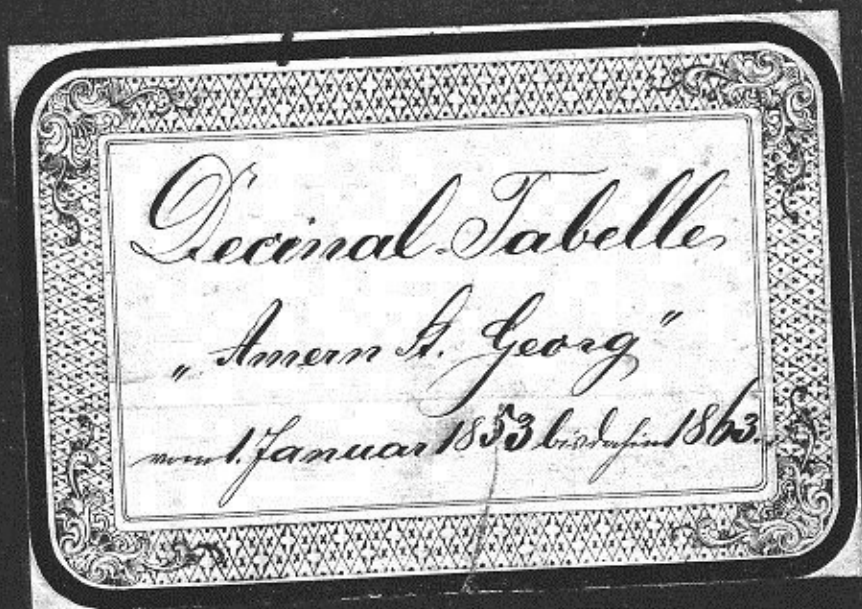 Decinal-Tabelle
„Amern St. Georg"
vom 1. Januar 1853 bis dahin 1863.